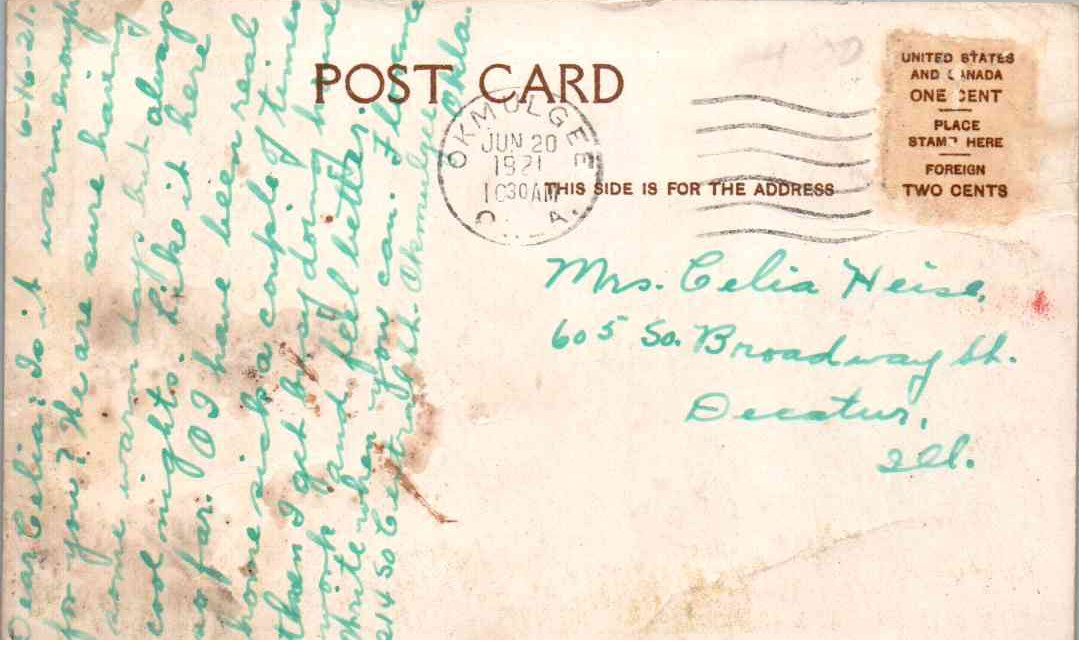 6-16-21.
Dear Celia: Is it warm enough
for you? We are sure having
some warm days but always
cool nights. Like it here
so far. O I have been real
home sick a couple of times
then I get busy doing house
work and feel better.
Write when you can. Florence
214 So Central Ok. Okmulgee Okla.
POST CARD
OKMULGEE
JUN 20
1921
1030AM
THIS SIDE IS FOR THE ADDRESS
UNITED STATES
AND CANADA
ONE CENT
PLACE
STAMP HERE
FOREIGN
TWO CENTS
Mrs. Celia Heise,
605 So. Broadway St.
Decatur,
Ill.